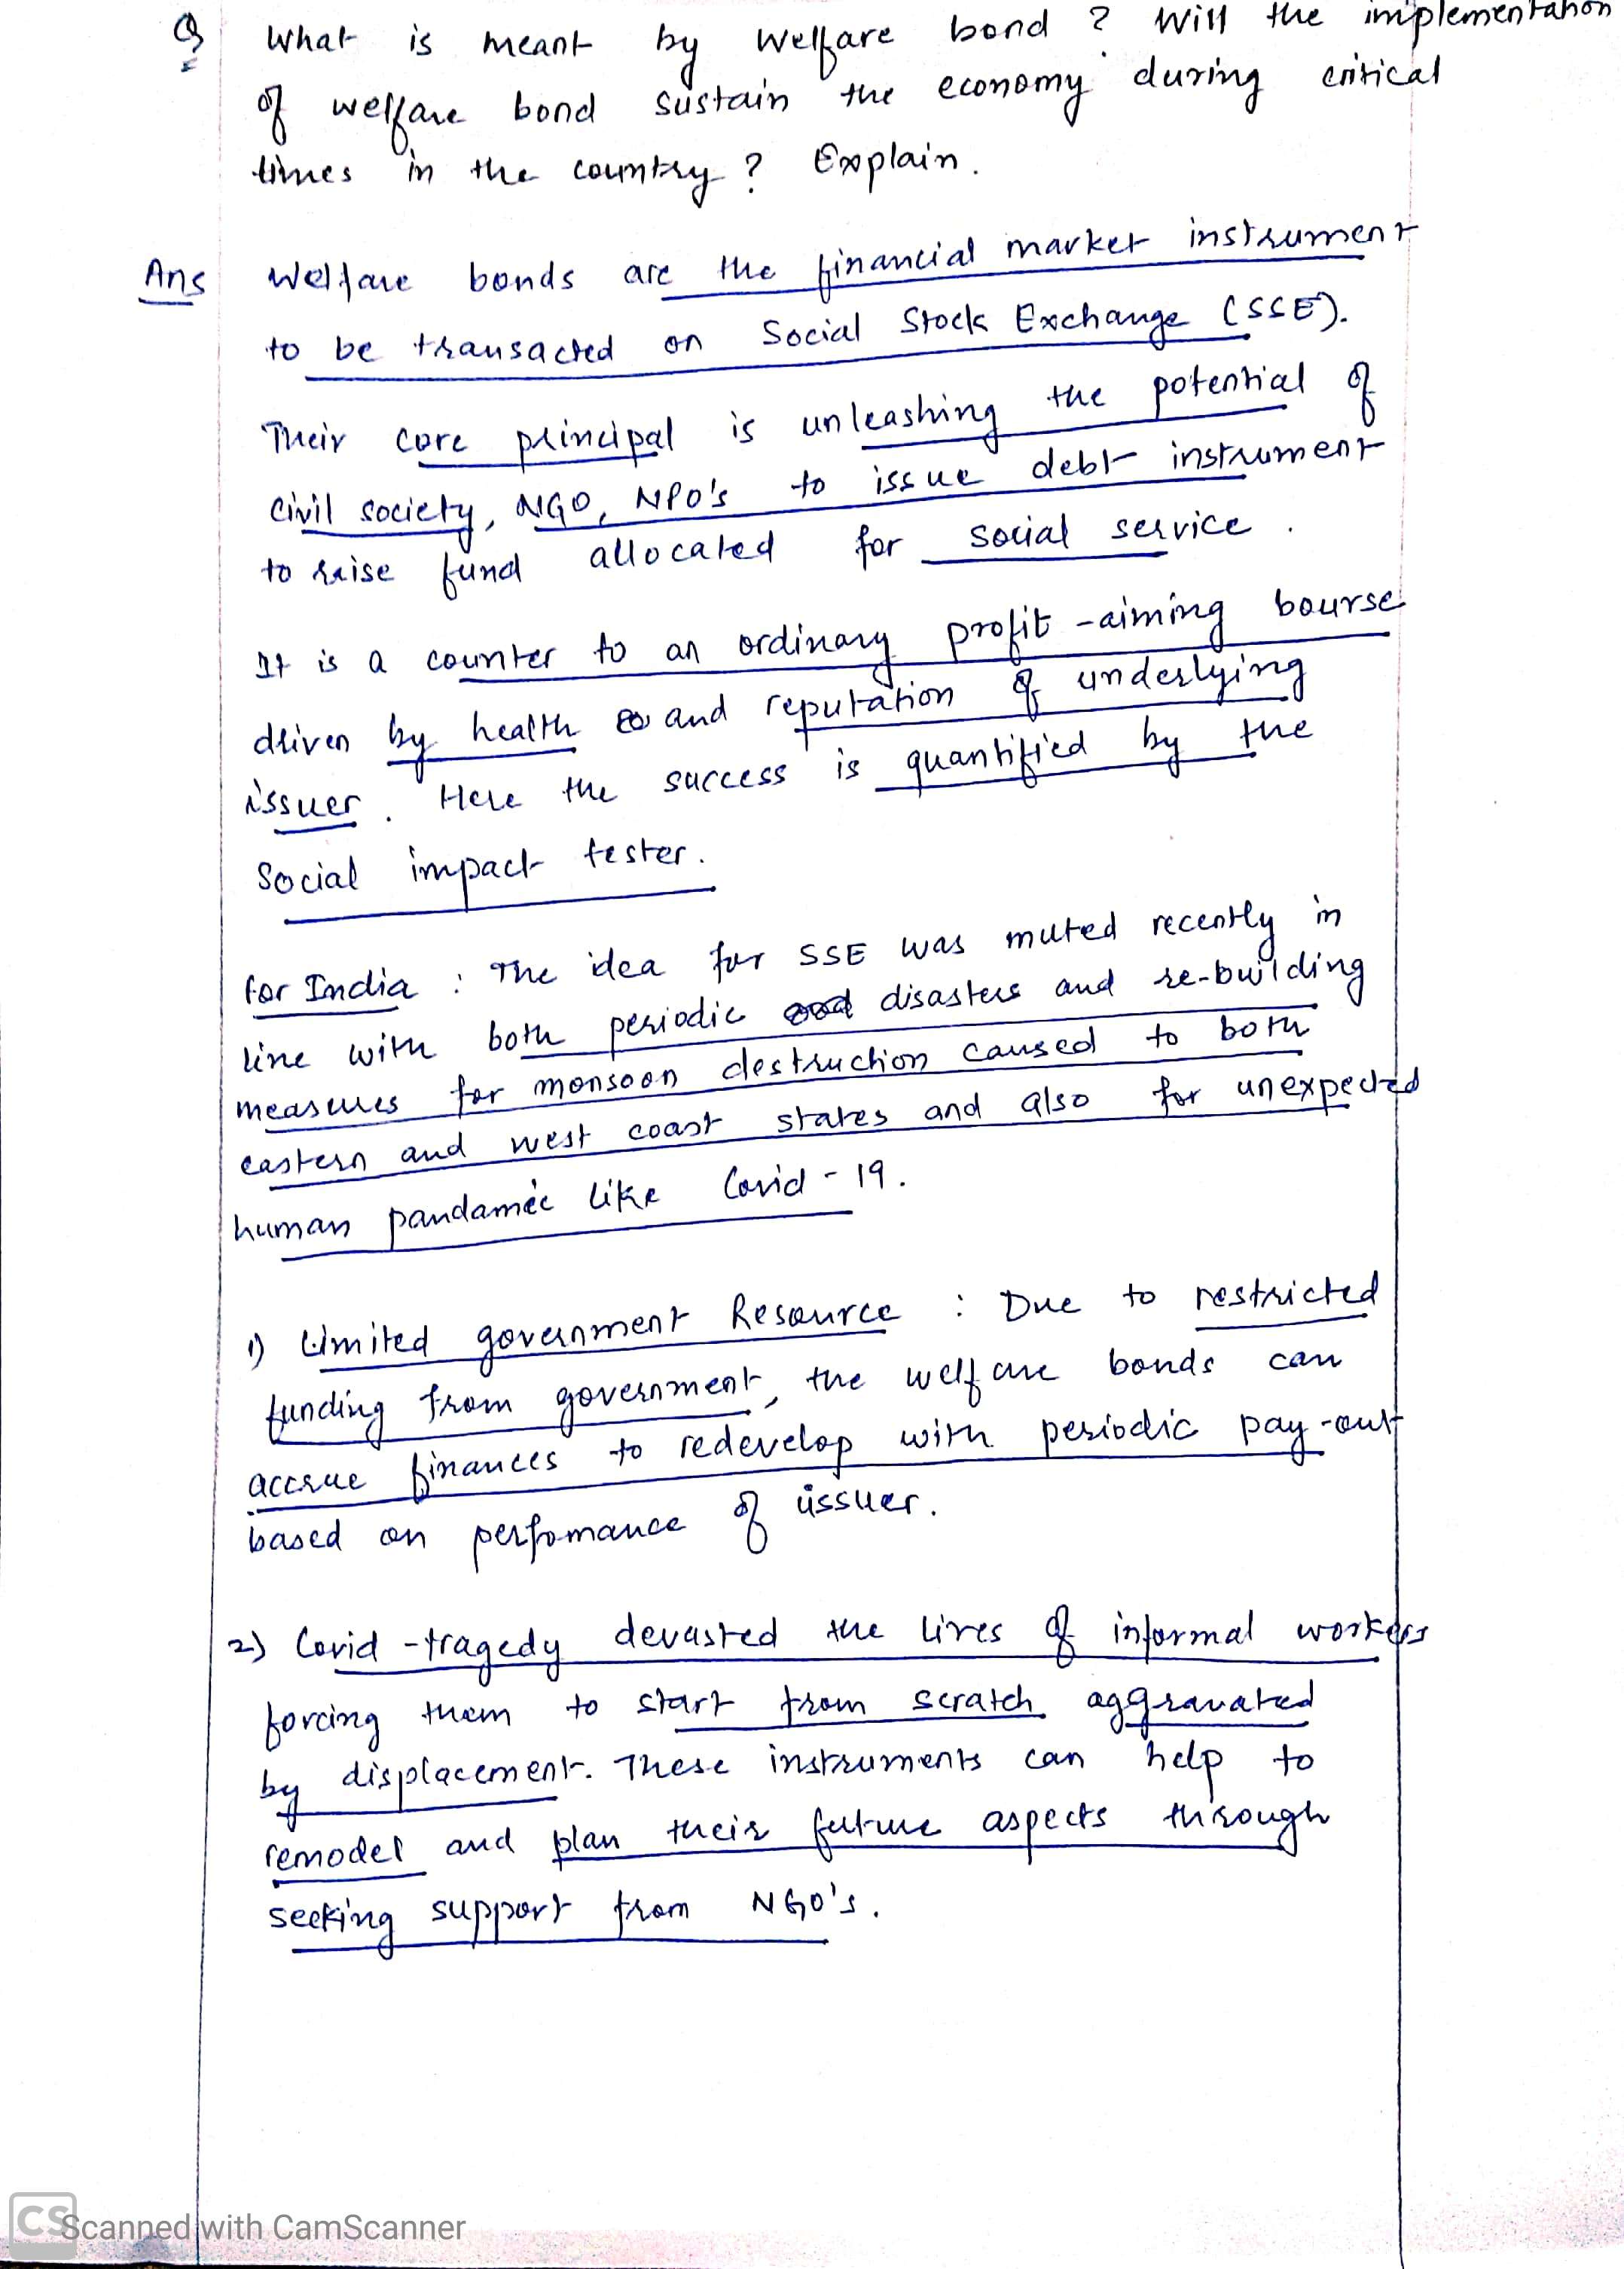 Q What is meant by welfare bond ? Will the implementation
of welfare bond sustain the economy during critical
times in the country ? Explain.
Ans Welfare bonds are the financial market instrument
to be transacted on Social Stock Exchange (SSE).
Their core principal is unleashing the potential of
civil society, NGO, NPO's to issue debt instrument
to raise fund allocated for social service .
It is a counter to an ordinary profit -aiming bourse
driven by health and reputation of underlying
issuer . Here the success is quantified by the
Social impact tester.
for India : The idea for SSE was muted recently in
line with both periodic disasters and re-building
measures for monsoon destruction caused to both
eastern and west coast states and also for unexpected
human pandamic like Covid - 19.
1) Limited government Resource : Due to restricted
funding from government, the welfare bonds can
accrue finances to redevelop with periodic pay-out
based on perfomance of issuer.
2) Covid -tragedy devasted the lives of informal workers
forcing them to start from scratch aggravated
by displacement. These instruments can help to
remodel and plan their future aspects through
seeking support from NGO's.
CS Scanned with CamScanner